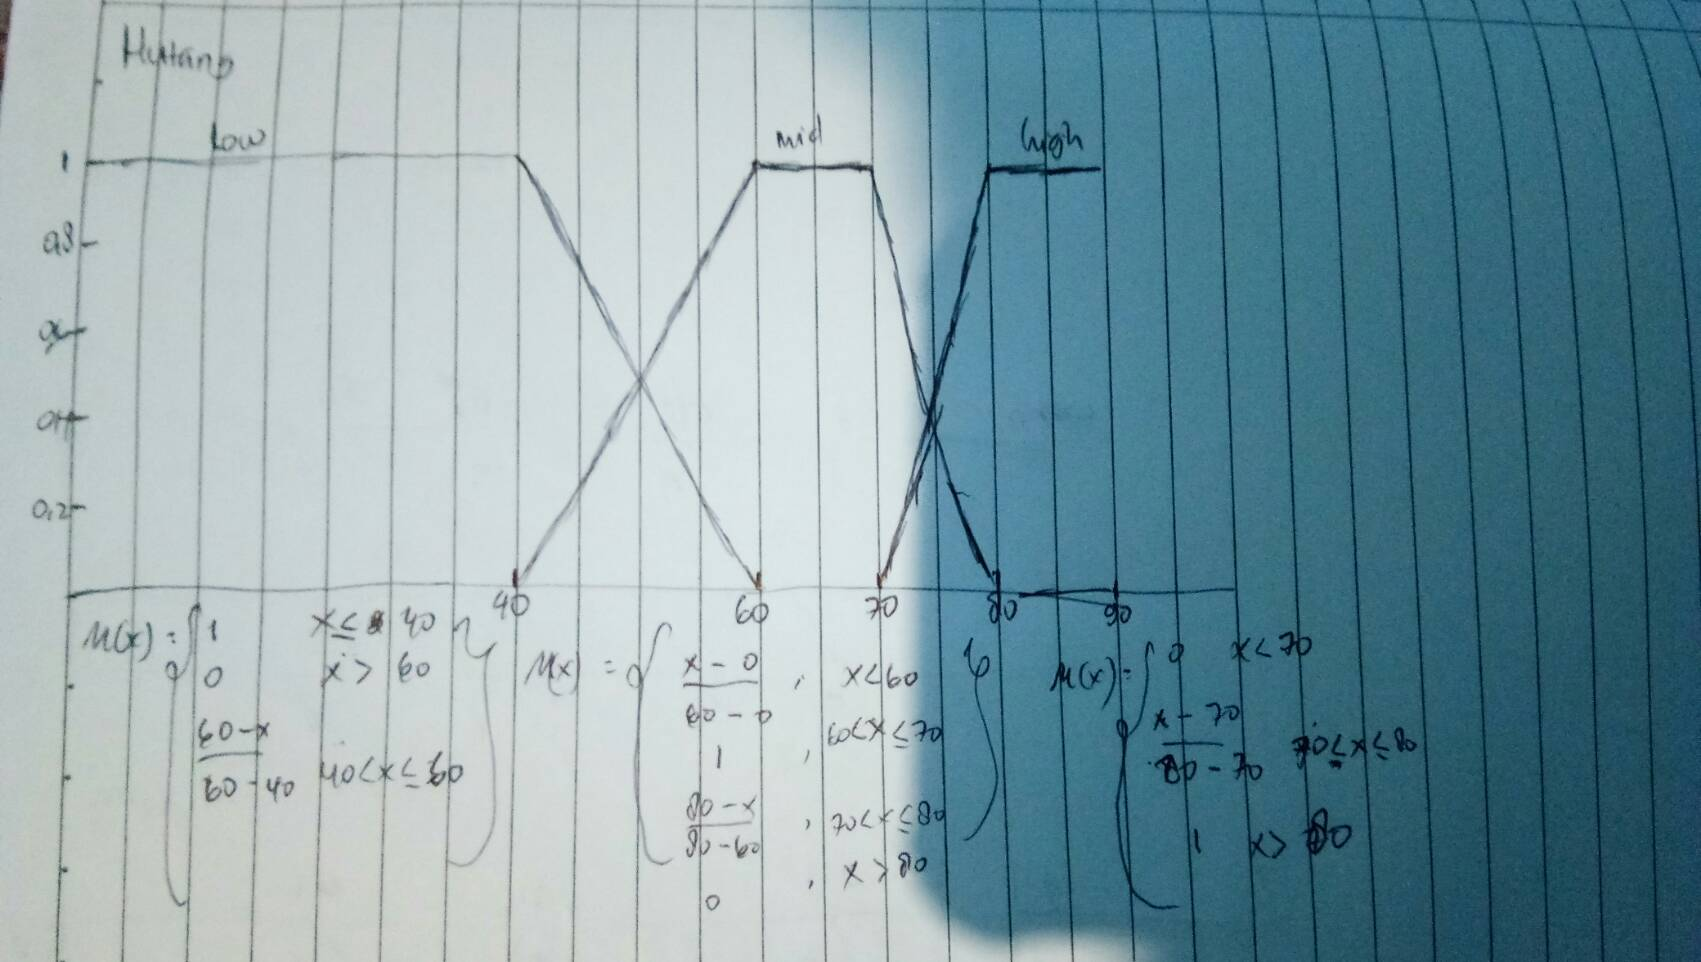 Hutang
low mid high
1
0,8
0,6
0,4
0,2
40 60 70 80 90
μ(x) = { 1 x ≤ 40
0 x > 60
60 - x / 60 - 40 40 < x ≤ 60 }
μ(x) = { x - 0 / 60 - 0 , x < 60
1 , 60 < x ≤ 70
80 - x / 80 - 60 , 70 < x ≤ 80
0 , x > 80 }
μ(x) = { 0 x < 70
x - 70 / 80 - 70 70 ≤ x ≤ 80
1 x > 80